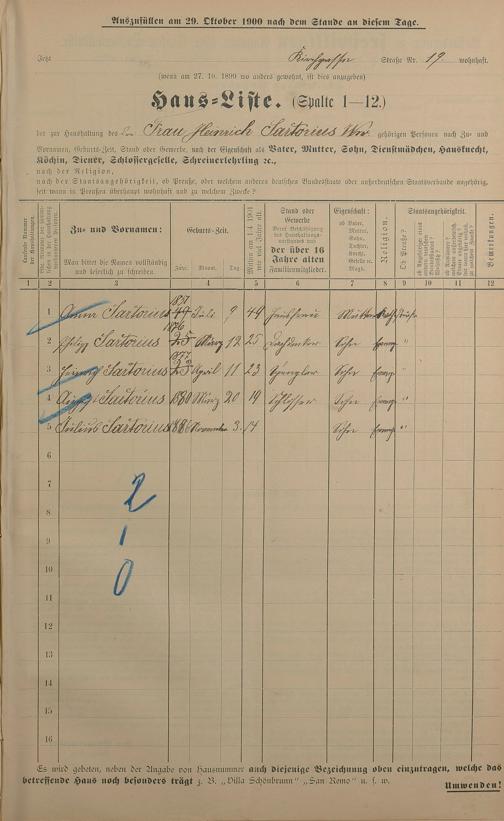 Auszufüllen am 29. Oktober 1900 nach dem Stande an diesem Tage.
Jetzt Kirchgasse Straße Nr. 19 wohnhaft.
(wenn am 27. 10. 1899 wo anders gewohnt, ist dies anzugeben)
Haus-Liste. (Spalte 1—12.)
der zur Haushaltung des Frau Heinrich Sartorius Ww. gehörigen Personen nach Zu- und
Vornamen, Geburts-Zeit, Stand oder Gewerbe, nach der Eigenschaft als Vater, Mutter, Sohn, Dienstmädchen, Hausknecht,
Köchin, Diener, Schlossergeselle, Schreinerlehrling ec.,
nach der Religion,
nach der Staatsangehörigkeit, ob Preuße, oder welchem anderen deutschen Bundesstaate oder außerdeutschen Staatsverbande angehörig,
seit wann in Preußen überhaupt wohnhaft und zu welchem Zwecke?
Zu- und Vornamen:
Man bittet die Namen vollständig und leserlich zu schreiben.
Geburts-Zeit.
Jahr. Monat. Tag.
Stand oder Gewerbe
der über 16 Jahre alten Familienmitglieder.
Eigenschaft:
ob Vater, Mutter, Sohn, Tochter, Knecht,
Religion.
Staatsangehörigkeit.
Ob Preuße?
Bemerkungen.
1 2 3 4 5 6 7 8 9 10 11 12
1 Sartorius Juli 9 44 Hausfrau Mutter
1876
2 Sartorius März 12 25 Dachdecker Sohn Evang. "
1877
3 Sartorius April 11 23 Spengler Sohn Evang. "
4 Sartorius 1880 März 20 19 Schlosser Sohn Evang. "
5 Julius Sartorius 1886 November 3. 14 Sohn Evang. "
6
7
8
9
10
11
12
13
14
15
16
2
1
0
Es wird gebeten, neben der Angabe von Hausnummer auch diejenige Bezeichnung oben einzutragen, welche das
betreffende Haus noch besonders trägt z. B. "Villa Schönbrunn" "San Remo" u. s. w.
Umwenden!